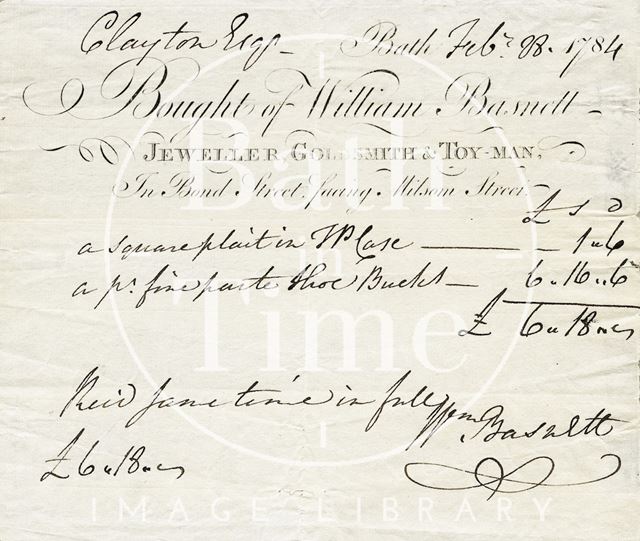 Clayton Esqr - Bath Feby 28. 1784
Bought of William Basnett -
JEWELLER, GOLDSMITH & TOY-MAN,
In Bond Street, facing Milsom Street
£ s d
a square plait in Case 1 „ 6
a pr. fine paste Shoe Buckls 6 „ 16 „ 6
£ 6 „ 18 „
Recd same time in full
Wm. Basnett
£ 6 „ 18 „
Bath
in
Time
IMAGE LIBRARY